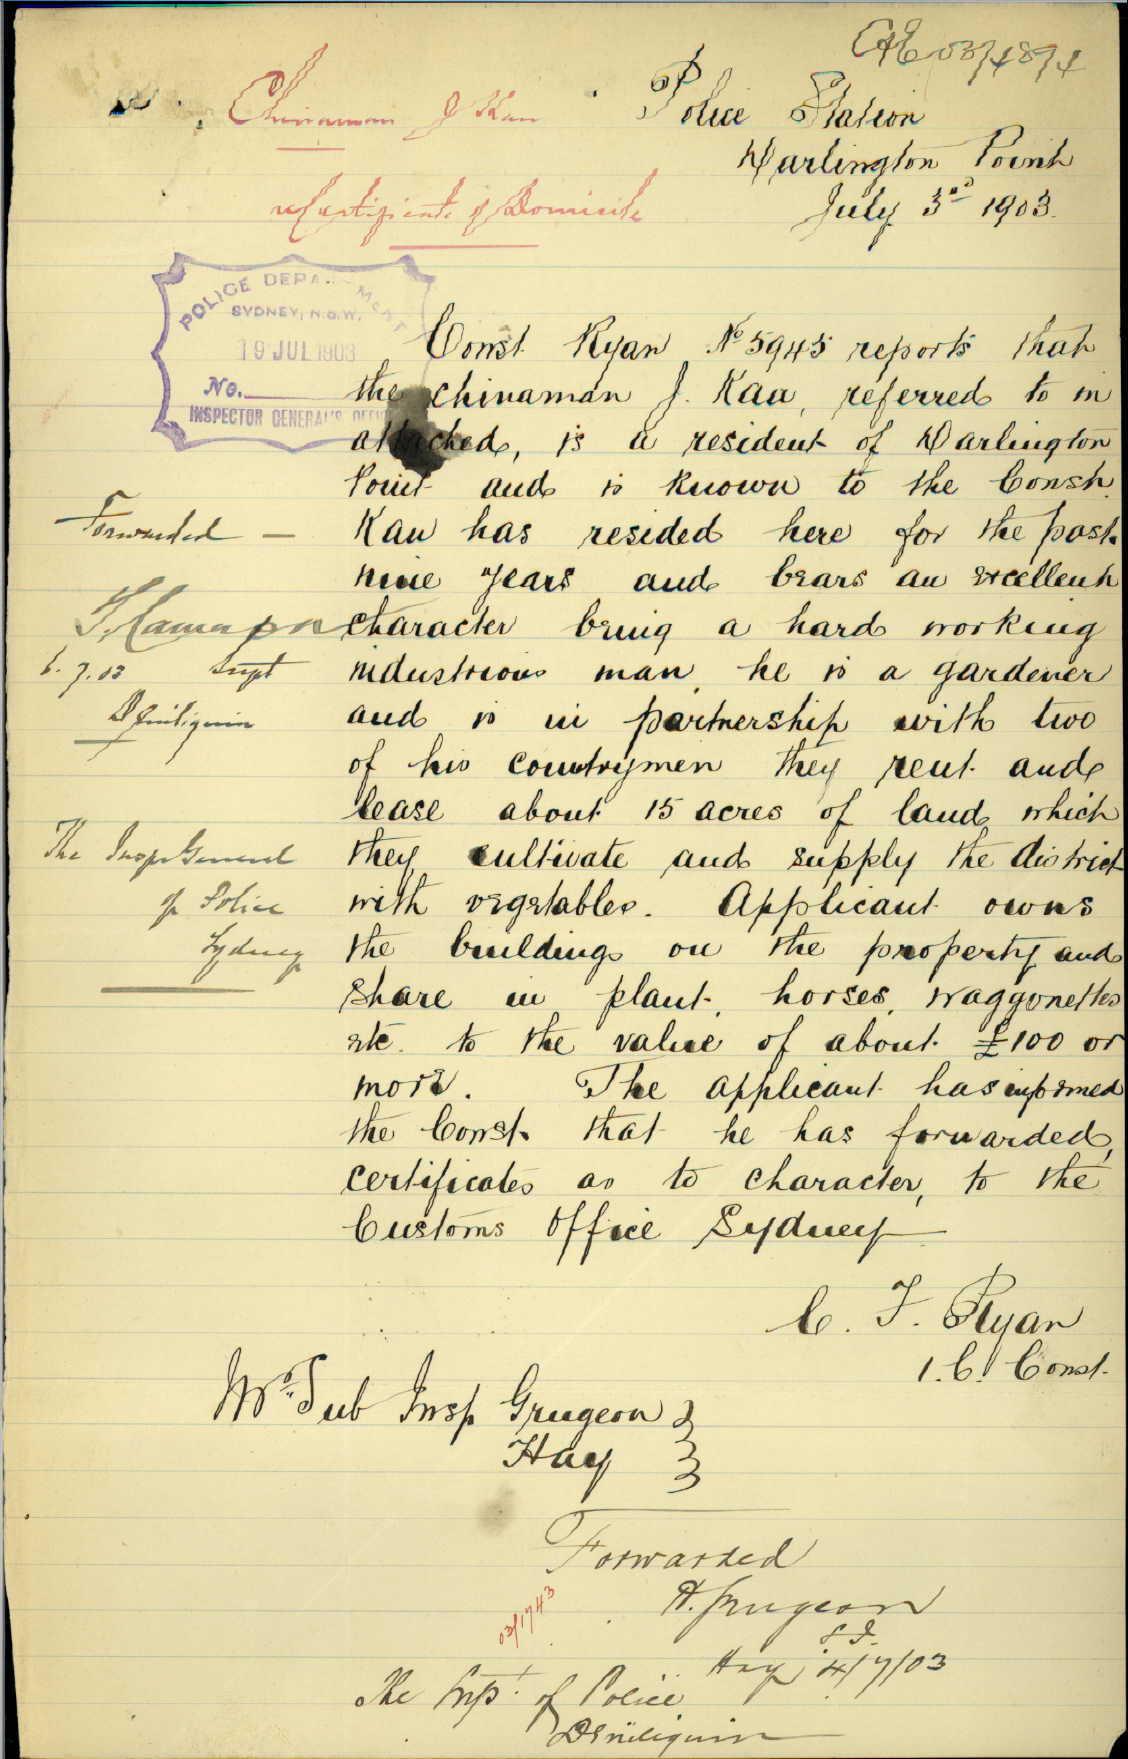 C&E 03/4874
Chinaman J Kan
Police Station
Darlington Point
July 3rd 1903.
re Certificate of Domicile
POLICE DEPARTMENT
SYDNEY, N.S.W.
19 JUL 1903
No.
INSPECTOR GENERAL'S OFFICE
Const. Ryan No 5945 reports that
the Chinaman J. Kau, referred to in
attached, is a resident of Darlington
Point and is known to the Const.
Kau has resided here for the past
nine years and bears an excellent
character being a hard working
industrious man, he is a gardener
and is in partnership with two
of his countrymen they rent and
lease about 15 acres of land which
they cultivate and supply the district
with vegetables. Applicant owns
the buildings on the property and
share in plant, horses, waggonettes
etc. to the value of about £100 or
more. The applicant has informed
the Const. that he has forwarded,
certificates as to character, to the
Customs Office Sydney
C. F. Ryan
1.C. Const.
Forwarded —
6.7.03 Supt
Deniliquin
The Insp General
of Police
Sydney
Mr. Sub Insp Grugeon
Hay
Forwarded
A. Grugeon
S.I.
Hay 4/7/03
03/1743
The Supt. of Police
Deniliquin